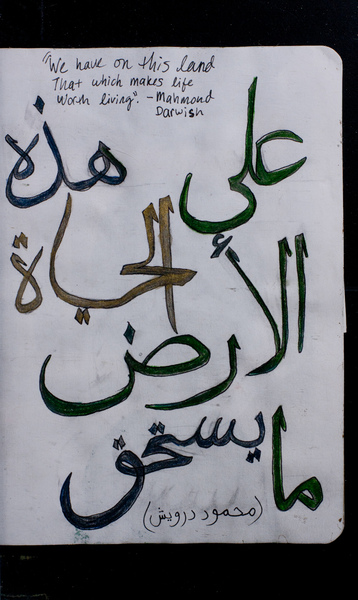 "We have on this land
That which makes life
Worth living". - Mahmoud
Darwish
على هذه
الأرض
ما يستحق
الحياة
(محمود درويش)